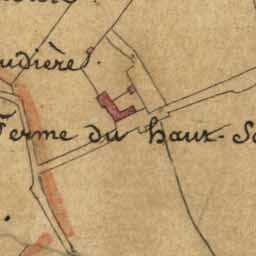 udière
Ferme du haut-S